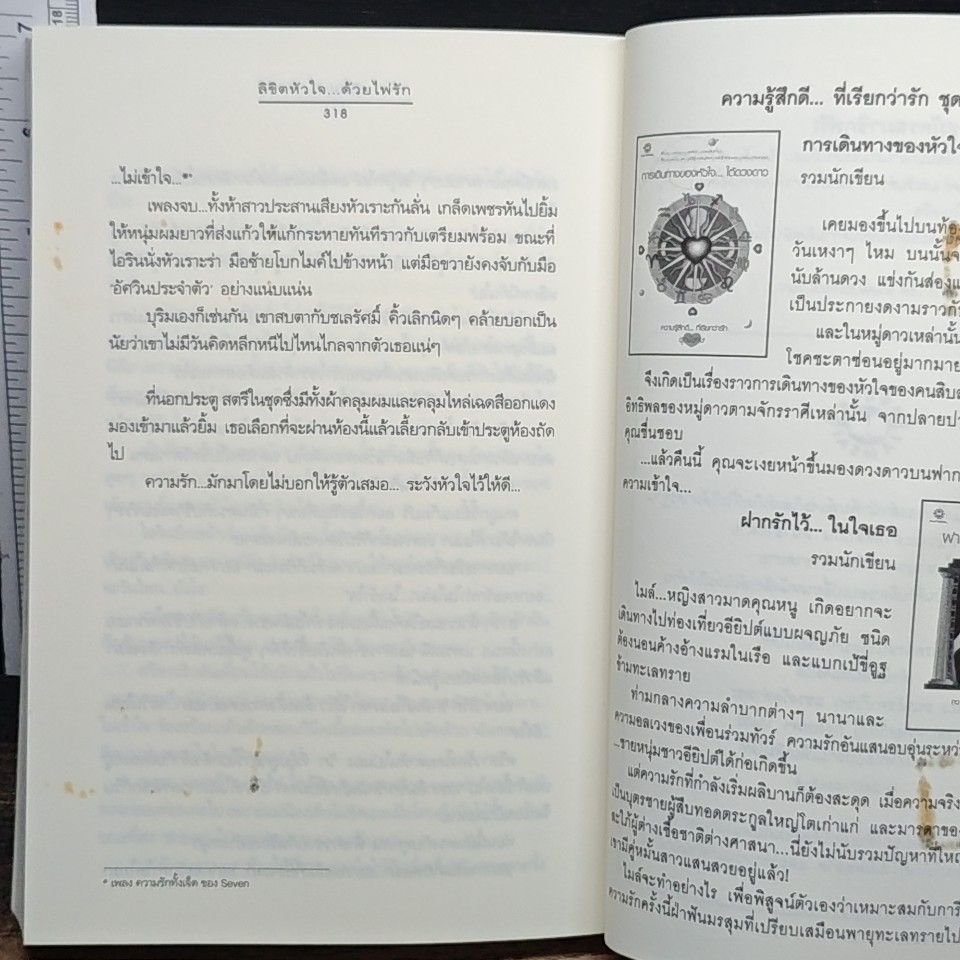 ลิขิตหัวใจ...ด้วยไฟรัก
318
...ไม่เข้าใจ...*"
เพลงจบ...ทั้งห้าสาวประสานเสียงหัวเราะกันลั่น เกล็ดเพชรหันไปยิ้ม
ให้หนุ่มผมยาวที่ส่งแก้วให้แก้กระหายทันทีราวกับเตรียมพร้อม ขณะที่
ไอรินนั่งหัวเราะร่า มือซ้ายโบกไมค์ไปข้างหน้า แต่มือขวายังคงจับกับมือ
'อัศวินประจำตัว' อย่างแน่บแน่น
บุริมเองก็เช่นกัน เขาสบตากับชเลรัศมิ์ คิ้วเลิกนิดๆ คล้ายบอกเป็น
นัยว่าเขาไม่มีวันคิดหลีกหนีไปไหนไกลจากตัวเธอแน่ๆ
ที่นอกประตู สตรีในชุดซึ่งมีทั้งผ้าคลุมผมและคลุมไหล่เฉดสีออกแดง
มองเข้ามาแล้วยิ้ม เธอเลือกที่จะผ่านห้องนี้แล้วเลี้ยวกลับเข้าประตูห้องถัด
ไป
ความรัก...มักมาโดยไม่บอกให้รู้ตัวเสมอ... ระวังหัวใจไว้ให้ดี...
* เพลง ความรักทั้งเจ็ด ของ Seven
ความรู้สึกดี... ที่เรียกว่ารัก ชุด
การเดินทางของหัวใจ
รวมนักเขียน
การเดินทางของหัวใจ... ใต้ดวงดาว
ความรู้สึกดี... ที่เรียกว่ารัก
เคยมองขึ้นไปบนท้อง
วันเหงาๆ ไหม บนนั้นจ
นับล้านดวง แข่งกันส่องแ
เป็นประกายงดงามราวกับ
และในหมู่ดาวเหล่านั้น
โชคชะตาซ่อนอยู่มากมาย
จึงเกิดเป็นเรื่องราวการเดินทางของหัวใจของคนสิบส
อิทธิพลของหมู่ดาวตามจักรราศีเหล่านั้น จากปลายป
คุณชื่นชอบ
...แล้วคืนนี้ คุณจะเงยหน้าขึ้นมองดวงดาวบนฟาก
ความเข้าใจ...
ฝากรักไว้... ในใจเธอ
รวมนักเขียน
ฝา
ไมล์...หญิงสาวมาดคุณหนู เกิดอยากจะ
เดินทางไปท่องเที่ยวอียิปต์แบบผจญภัย ชนิด
ต้องนอนค้างอ้างแรมในเรือ และแบกเป้ขี่อูฐ
ข้ามทะเลทราย
ท่ามกลางความลำบากต่างๆ นานาและ
ความอลเวงของเพื่อนร่วมทัวร์ ความรักอันแสนอบอุ่นระหว่
...ชายหนุ่มชาวอียิปต์ได้ก่อเกิดขึ้น
แต่ความรักที่กำลังเริ่มผลิบานก็ต้องสะดุด เมื่อความจริง
เป็นบุตรชายผู้สืบทอดตระกูลใหญ่โตเก่าแก่ และมารดาของ
สะใภ้ผู้ต่างเชื้อชาติต่างศาสนา...นี่ยังไม่นับรวมปัญหาที่ใหญ่
เขามีคู่หมั้นสาวแสนสวยอยู่แล้ว!
ไมล์จะทำอย่างไร เพื่อพิสูจน์ตัวเองว่าเหมาะสมกับการ
ความรักครั้งนี้ฝ่าฟันมรสุมที่เปรียบเสมือนพายุทะเลทรายไป